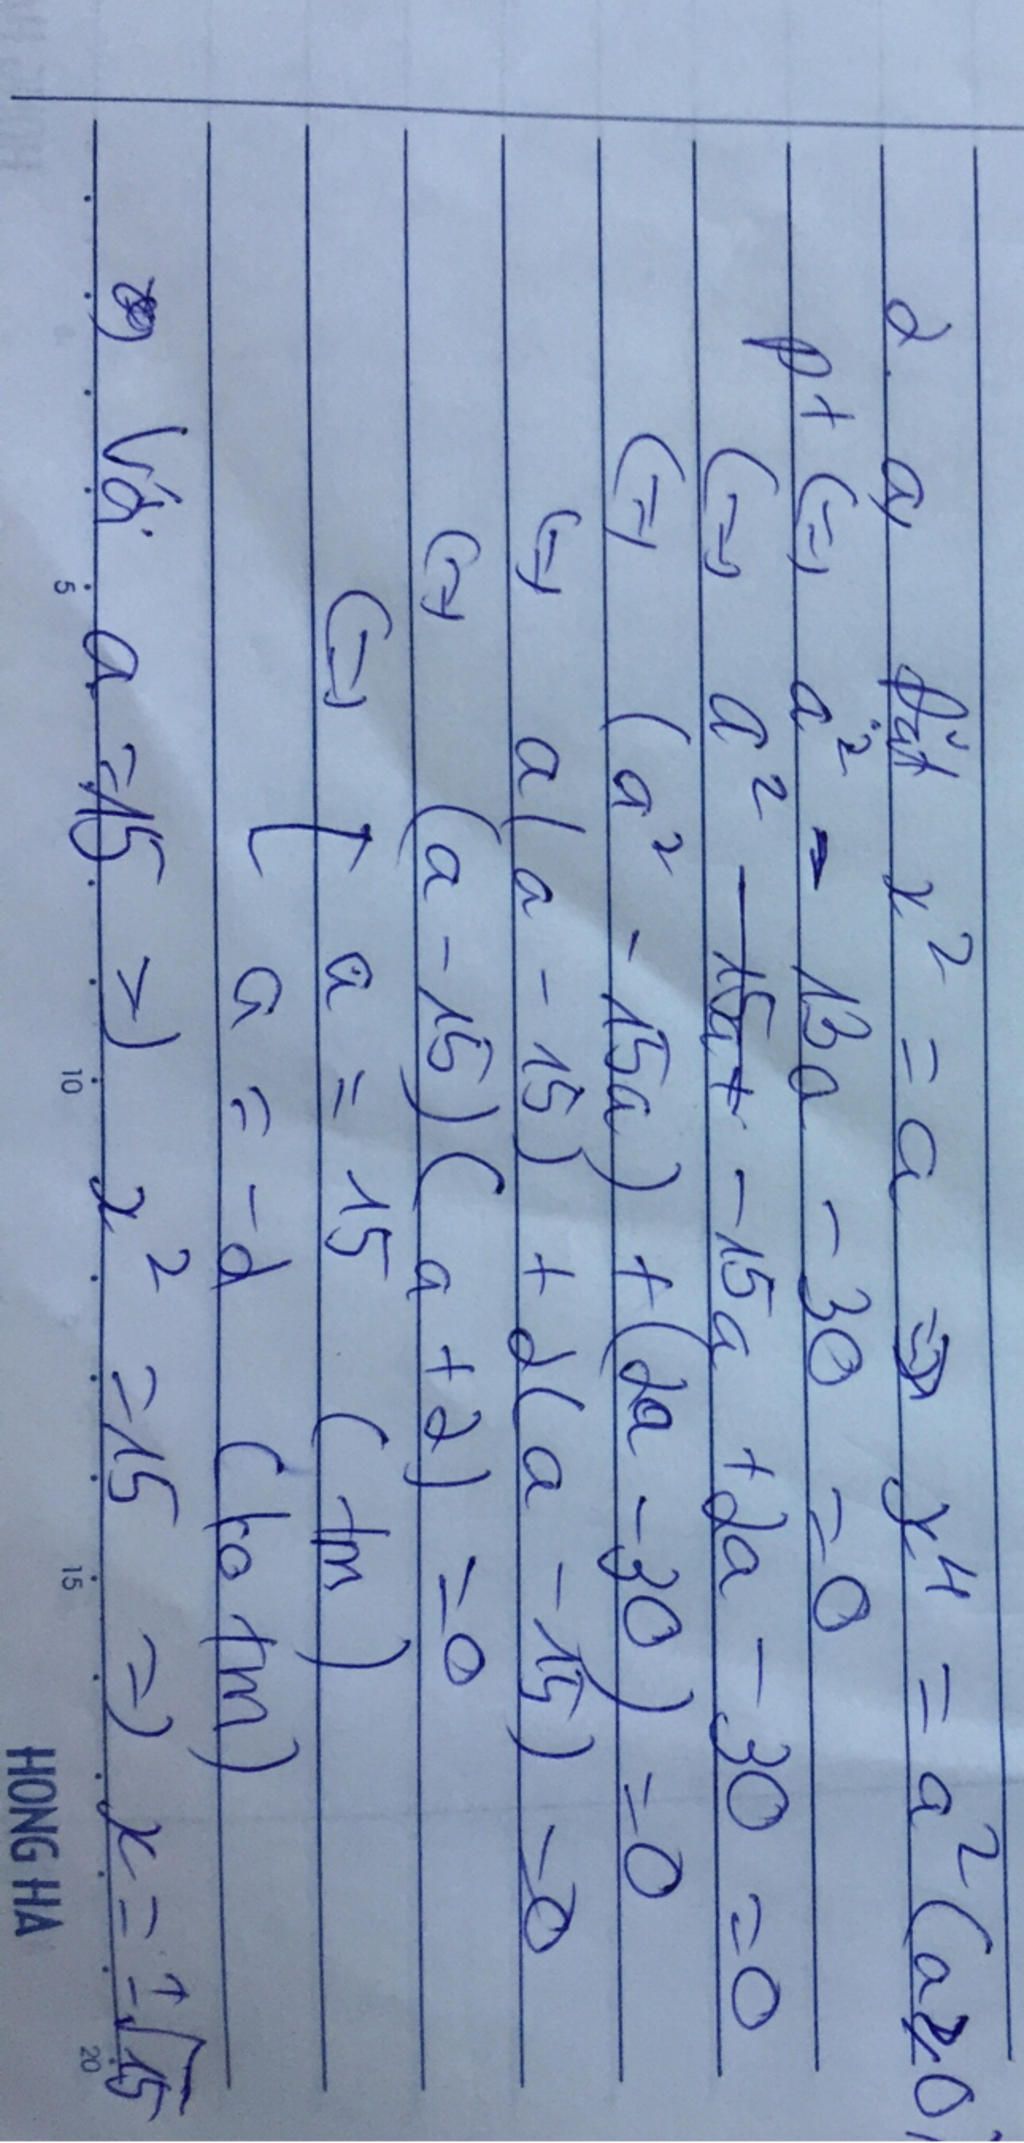 2. a, Đặt x² = a => x⁴ = a² (a ≥ 0)
pt (=) a² - 13a - 30 = 0
(=) a² - 15a + 2a - 30 = 0
(=) (a² - 15a) + (2a - 30) = 0
(=) a(a - 15) + 2(a - 15) = 0
(=) (a - 15)(a + 2) = 0
(=) [ a = 15 (tm)
a = -2 (ko tm)
Với a = 15 => x² = 15 => x = ±√15
5 10 15 20
HONG HA